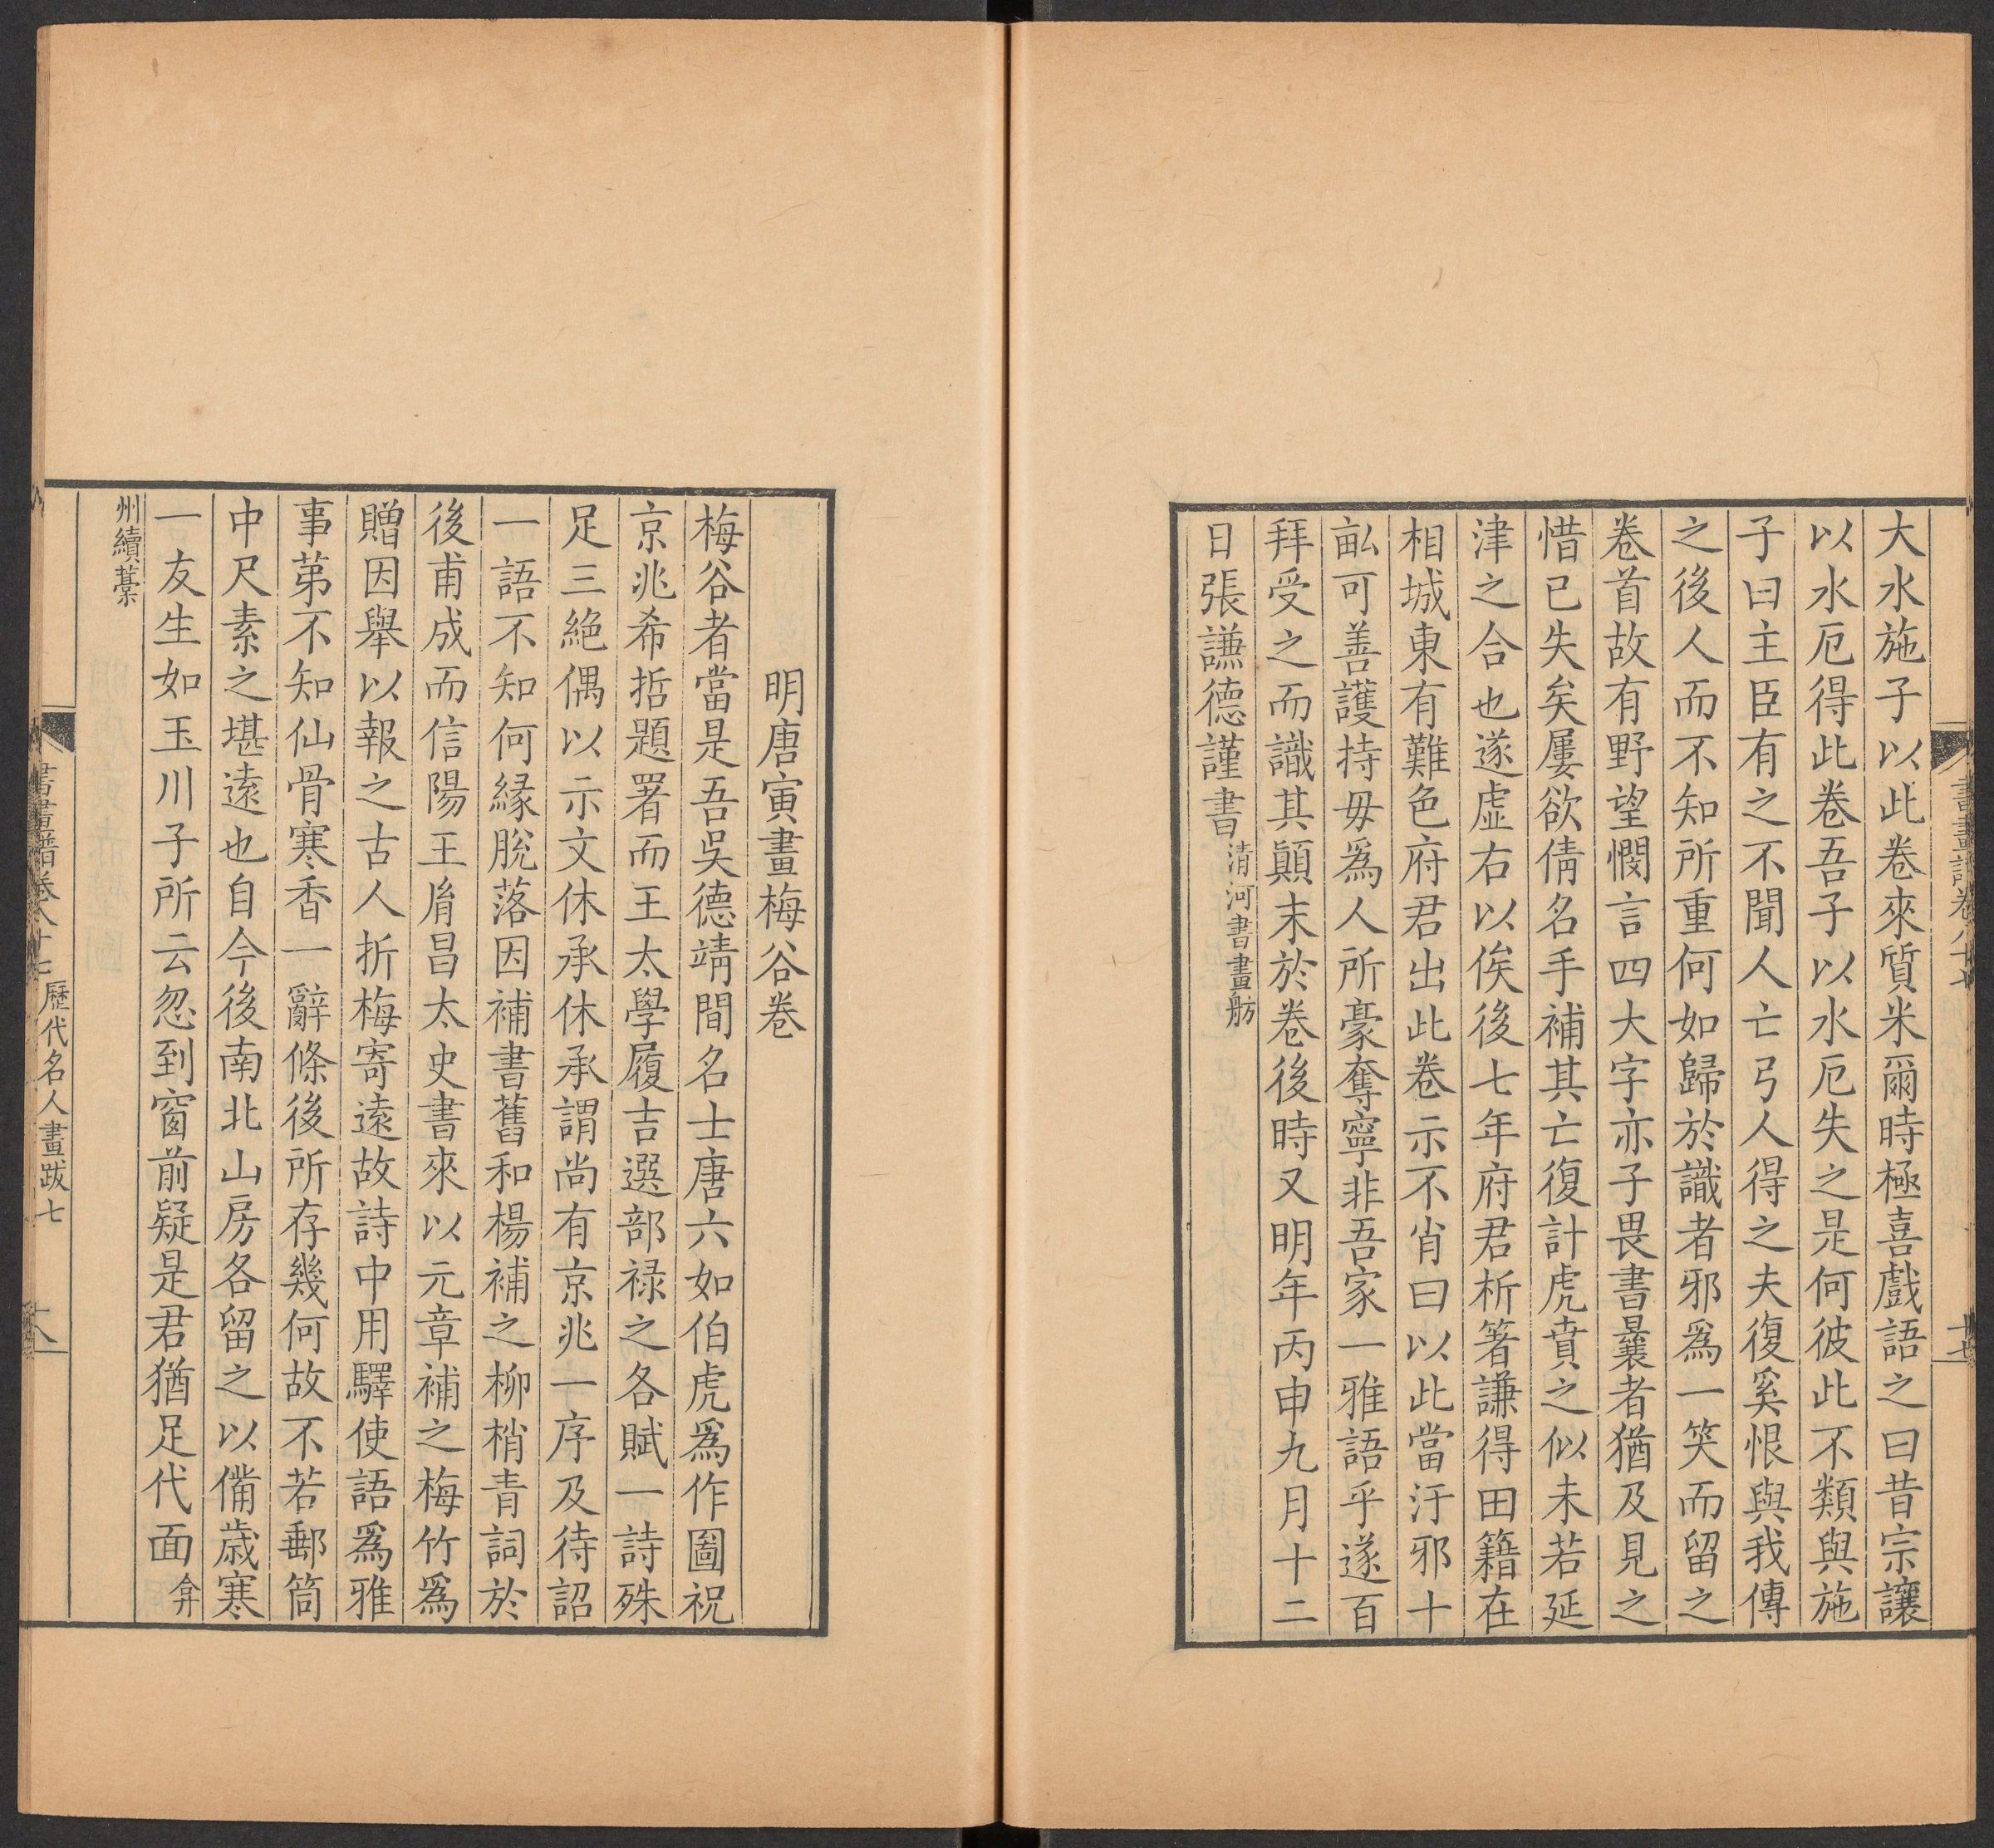 大水施子以此卷來質米爾時極喜戲語之曰昔宗讓
以水厄得此卷吾子以水厄失之是何彼此不類與施
子曰主臣有之不聞人亡弓人得之夫復奚恨與我傳
之後人而不知所重何如歸於識者邪爲一笑而留之
卷首故有野望憫言四大字亦子畏書曩者猶及見之
惜已失矣屢欲倩名手補其亡復計虎賁之似未若延
津之合也遂虛右以俟後七年府君析箸謙得田籍在
相城東有難色府君出此卷示不肖曰以此當汙邪十
畝可善護持毋爲人所豪奪寧非吾家一雅語乎遂百
拜受之而識其顚末於卷後時又明年丙申九月十二
日張謙德謹書清河書畫舫
明唐寅畫梅谷卷
梅谷者當是吾吳德靖間名士唐六如伯虎爲作圖祝
京兆希哲題署而王太學履吉選部祿之各賦一詩殊
足三絕偶以示文休承休承謂尚有京兆一序及待詔
一語不知何緣脫落因補書舊和楊補之柳梢青詞於
後甫成而信陽王胤昌太史書來以元章補之梅竹爲
贈因舉以報之古人折梅寄遠故詩中用驛使語爲雅
事第不知仙骨寒香一辭條後所存幾何故不若郵筒
中尺素之堪遠也自今後南北山房各留之以備歲寒
一友生如玉川子所云忽到窗前疑是君猶足代面弇
州續藁
書畫譜卷八十七 歷代名人畫跋七 十八